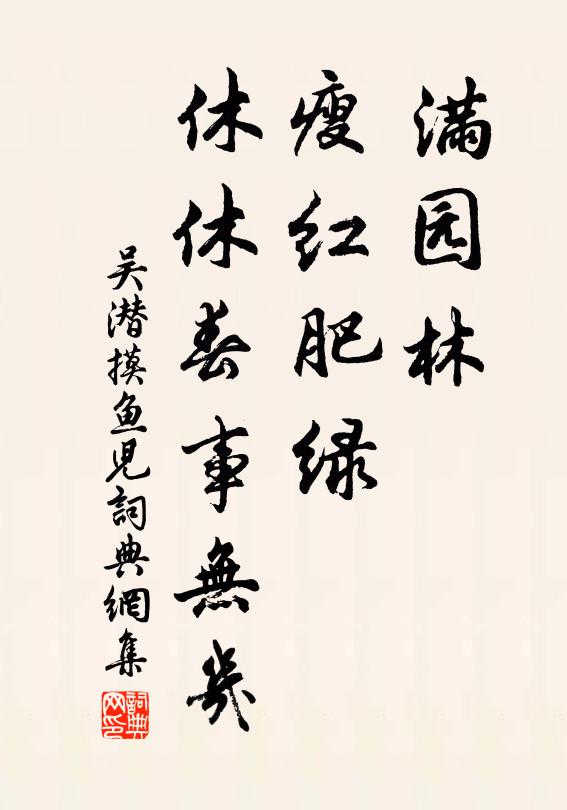 满园林
瘦红肥绿
休休春事無几
吴潜摸鱼児詞典網集
詞典网印